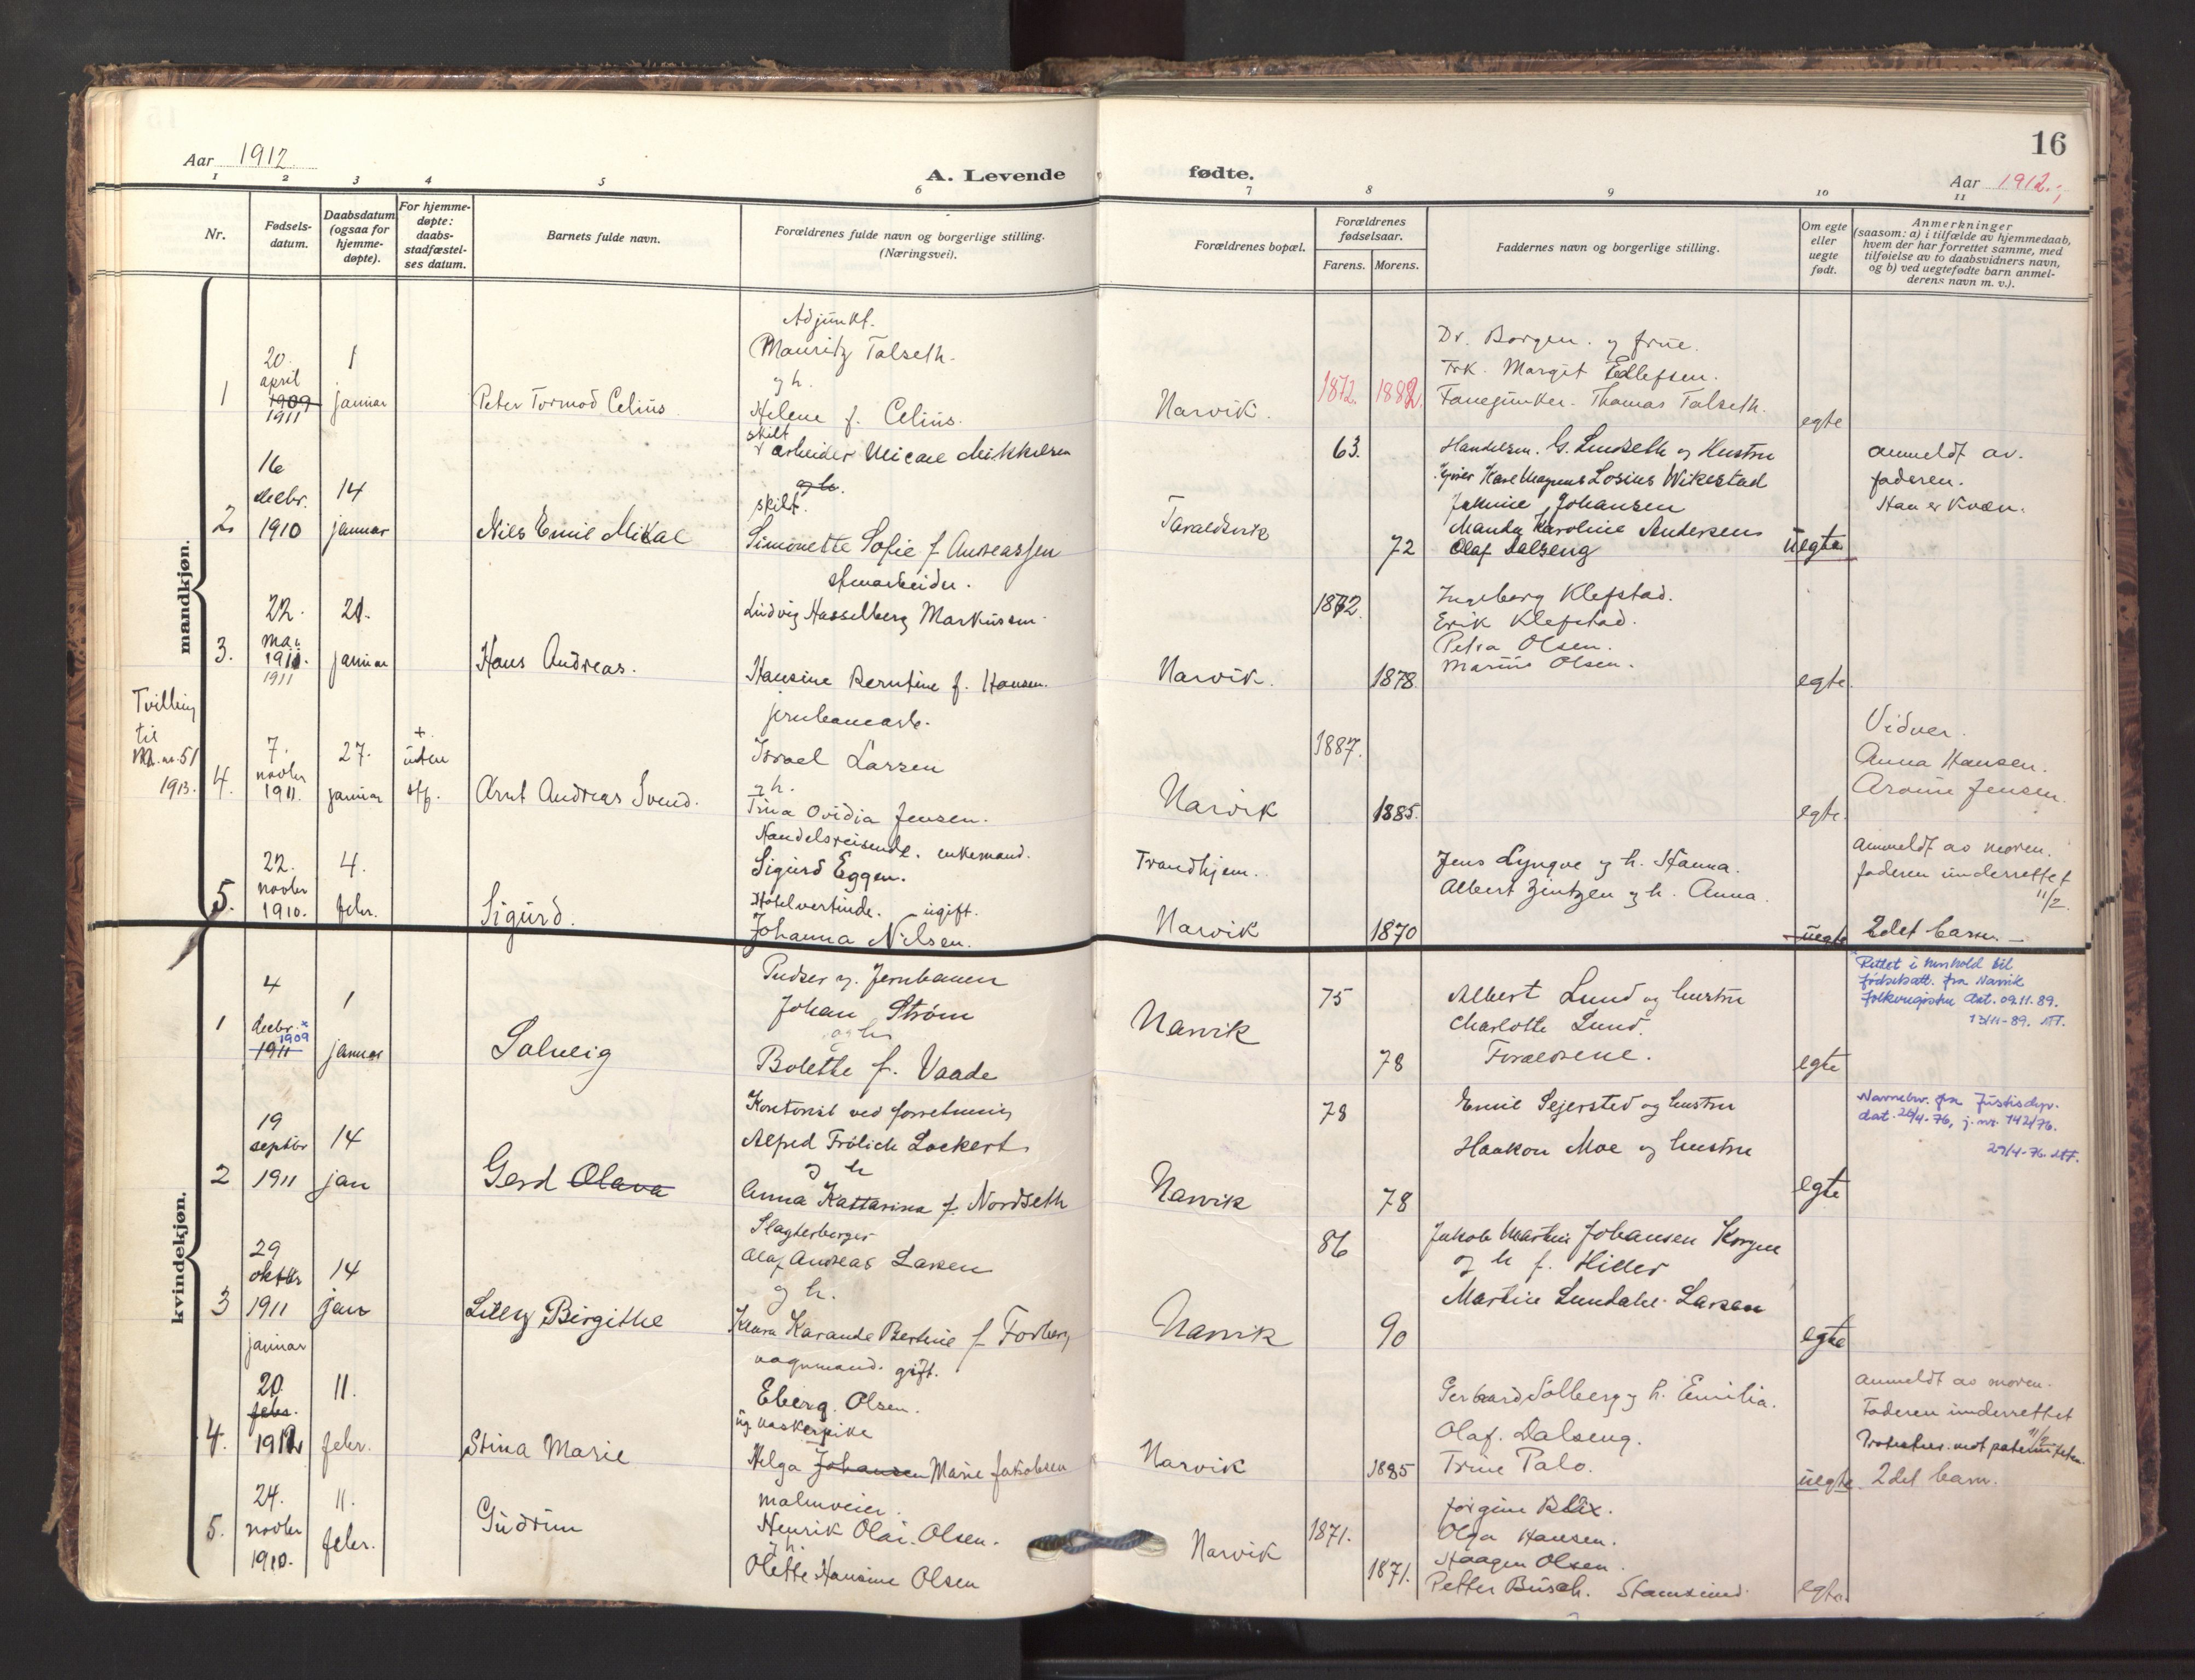 16
Aar 1912.
A. Levende
fødte.
Aar 1912.
1 2 3 4 5 6 7 8 9 10 11
Nr.
Fødsels-
datum.
Daabsdatum
(ogsaa for
hjemme-
døpte).
For hjemme-
døpte:
daabs-
stadfæstel-
ses datum.
Barnets fulde navn.
Forældrenes fulde navn og borgerlige stilling.
(Næringsvei).
Forældrenes bopæl.
Forældrenes
fødselsaar.
Farens. Morens.
Faddernes navn og borgerlige stilling.
Om egte
eller
uegte
født.
Anmerkninger
(saasom: a) i tilfælde av hjemmedaab,
hvem der har forrettet samme, med
tilføielse av to daabsvidners navn,
og b) ved uegtefødte barn anmel-
derens navn m. v.).
mandkjøn.
1
20.
april
1909
1911
1
januar
Peter Tormod Celius.
Adjunkt.
Mauritz Talseth.
g h.
Helene f. Celius.
Narvik.
1872. 1882.
Dr. Borgen. og frue.
Frk. Margit Edlefsen.
Fanejunker. Thomas Talseth.
egte
2
16
decbr.
1910
14
januar
Nils Emil Mikal
skilt
arbeider Micael Mikkelsen
og h.
skilt.
Simonette Sofie f Andreassen
Taraldsvik
63.
72
Handelsm. G. Lundseth og Hustru
Karl Magnus Losius Wikestad
Johansen
Karoline Andersen
Olaf Dalseng
uegte
anmeldt av.
faderen.
Han er kvæn.
3.
22.
mai
1911.
1911
21.
januar
Hans Andreas.
Ludvig Hasselberg Markussen.
Hansine Berntine f. Hansen.
Narvik.
1872.
1878.
Ingeborg Klefstad.
Erik Klefstad.
Petra Olsen.
Marius Olsen.
egte.
Tvilling
til
M. nr. 51
1913.
4.
7.
novbr
1911.
27.
januar
+
uten
stf.
Arnt Andreas Svend.
jernbanearb.
Israel Larsen
g h.
Trina Ovidia Jensen.
Narvik
1887.
1885.
egte.
Vidner.
Anna Hansen.
Jensen.
5.
22.
novbr
1910.
4.
febr.
Sigurd.
Handelsreisende. enkemand.
Sigurd Eggen.
Hotelvertinde. ugift.
Johanna Nilsen.
Trondhjem.
Narvik
1870
Jens Lyngve g h. Hanna.
Albert Zintzen g h. Anna.
uegte
anmeldt av moren.
faderen underrettet
11/2.
2det barn.
kvindekjøn.
1
4
decbr. x
1911 1909
1
januar
Solveig
Pudser v. Jernbanen
Johan Strøm
og h
Bolette f. Vaade
Narvik
75
78
Albert Lund og hustru
Charlotte Lund.
Forældrene.
egte
x Rettet i henhold til
fødselsatt. fra Narvik
folkeregister dat. 09.11.89.
13/11-89.
2
19
septbr
1911
14
jan
Gerd Olava
Kontorist ved forretning
Alfred Frölich Lockert
g h
Anna Kattarina f. Nordseth
Narvik
78
78
Emil Sejersted og hustru
Haakon Moe og hustru
egte
Navnebev. fra Justisdep.
dat. 20/4-76, j. nr. 142/76.
29/4-76.
3
29
oktbr
1911
14
jan
Lilly Birgithe
Slagterborger
Olaf Andreas Larsen
g h.
Klara Karande Bertine f Forberg
Narvik
86
90
Jakob Martin Johansen Korgen
og h f. Hiller
Martin Lundahl-Larsen
egte
4.
januar
20.
febr.
1912
11.
febr.
Stina Marie
vognmand. gift.
Eberg. Olsen.
ug vaskerpike
Helga Johansen Marie Jakobsen
Narvik
1885
Gerhard Solberg g h. Emilia.
Olaf. Dalseng.
Trine Palo.
uegte
Anmeldt av moren.
Faderen underrettet
11/2
Protesterer mot paterniteten.
2det barn.
5.
24.
novbr
1910.
11.
febr.
Gudrun
malmveier.
Henrik Olai. Olsen.
g h.
Olette Hansine Olsen
Narvik
1871.
1871.
Jørgine Blix.
Olga Hansen.
Haagen Olsen.
Petter Busch. Stamsund.
egte.